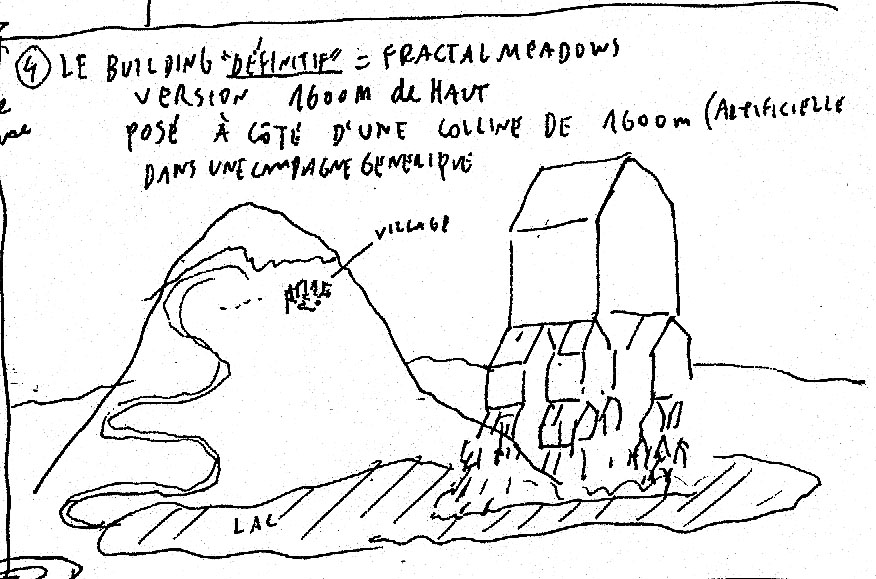 4 LE BUILDING "DÉFINITIF" = FRACTAL MEADOWS
VERSION 1600m de HAUT
POSÉ À CÔTÉ D'UNE COLLINE DE 1600m (ARTIFICIELLE
DANS UNE CAMPAGNE GENERIQUE
VILLAGE
LAC